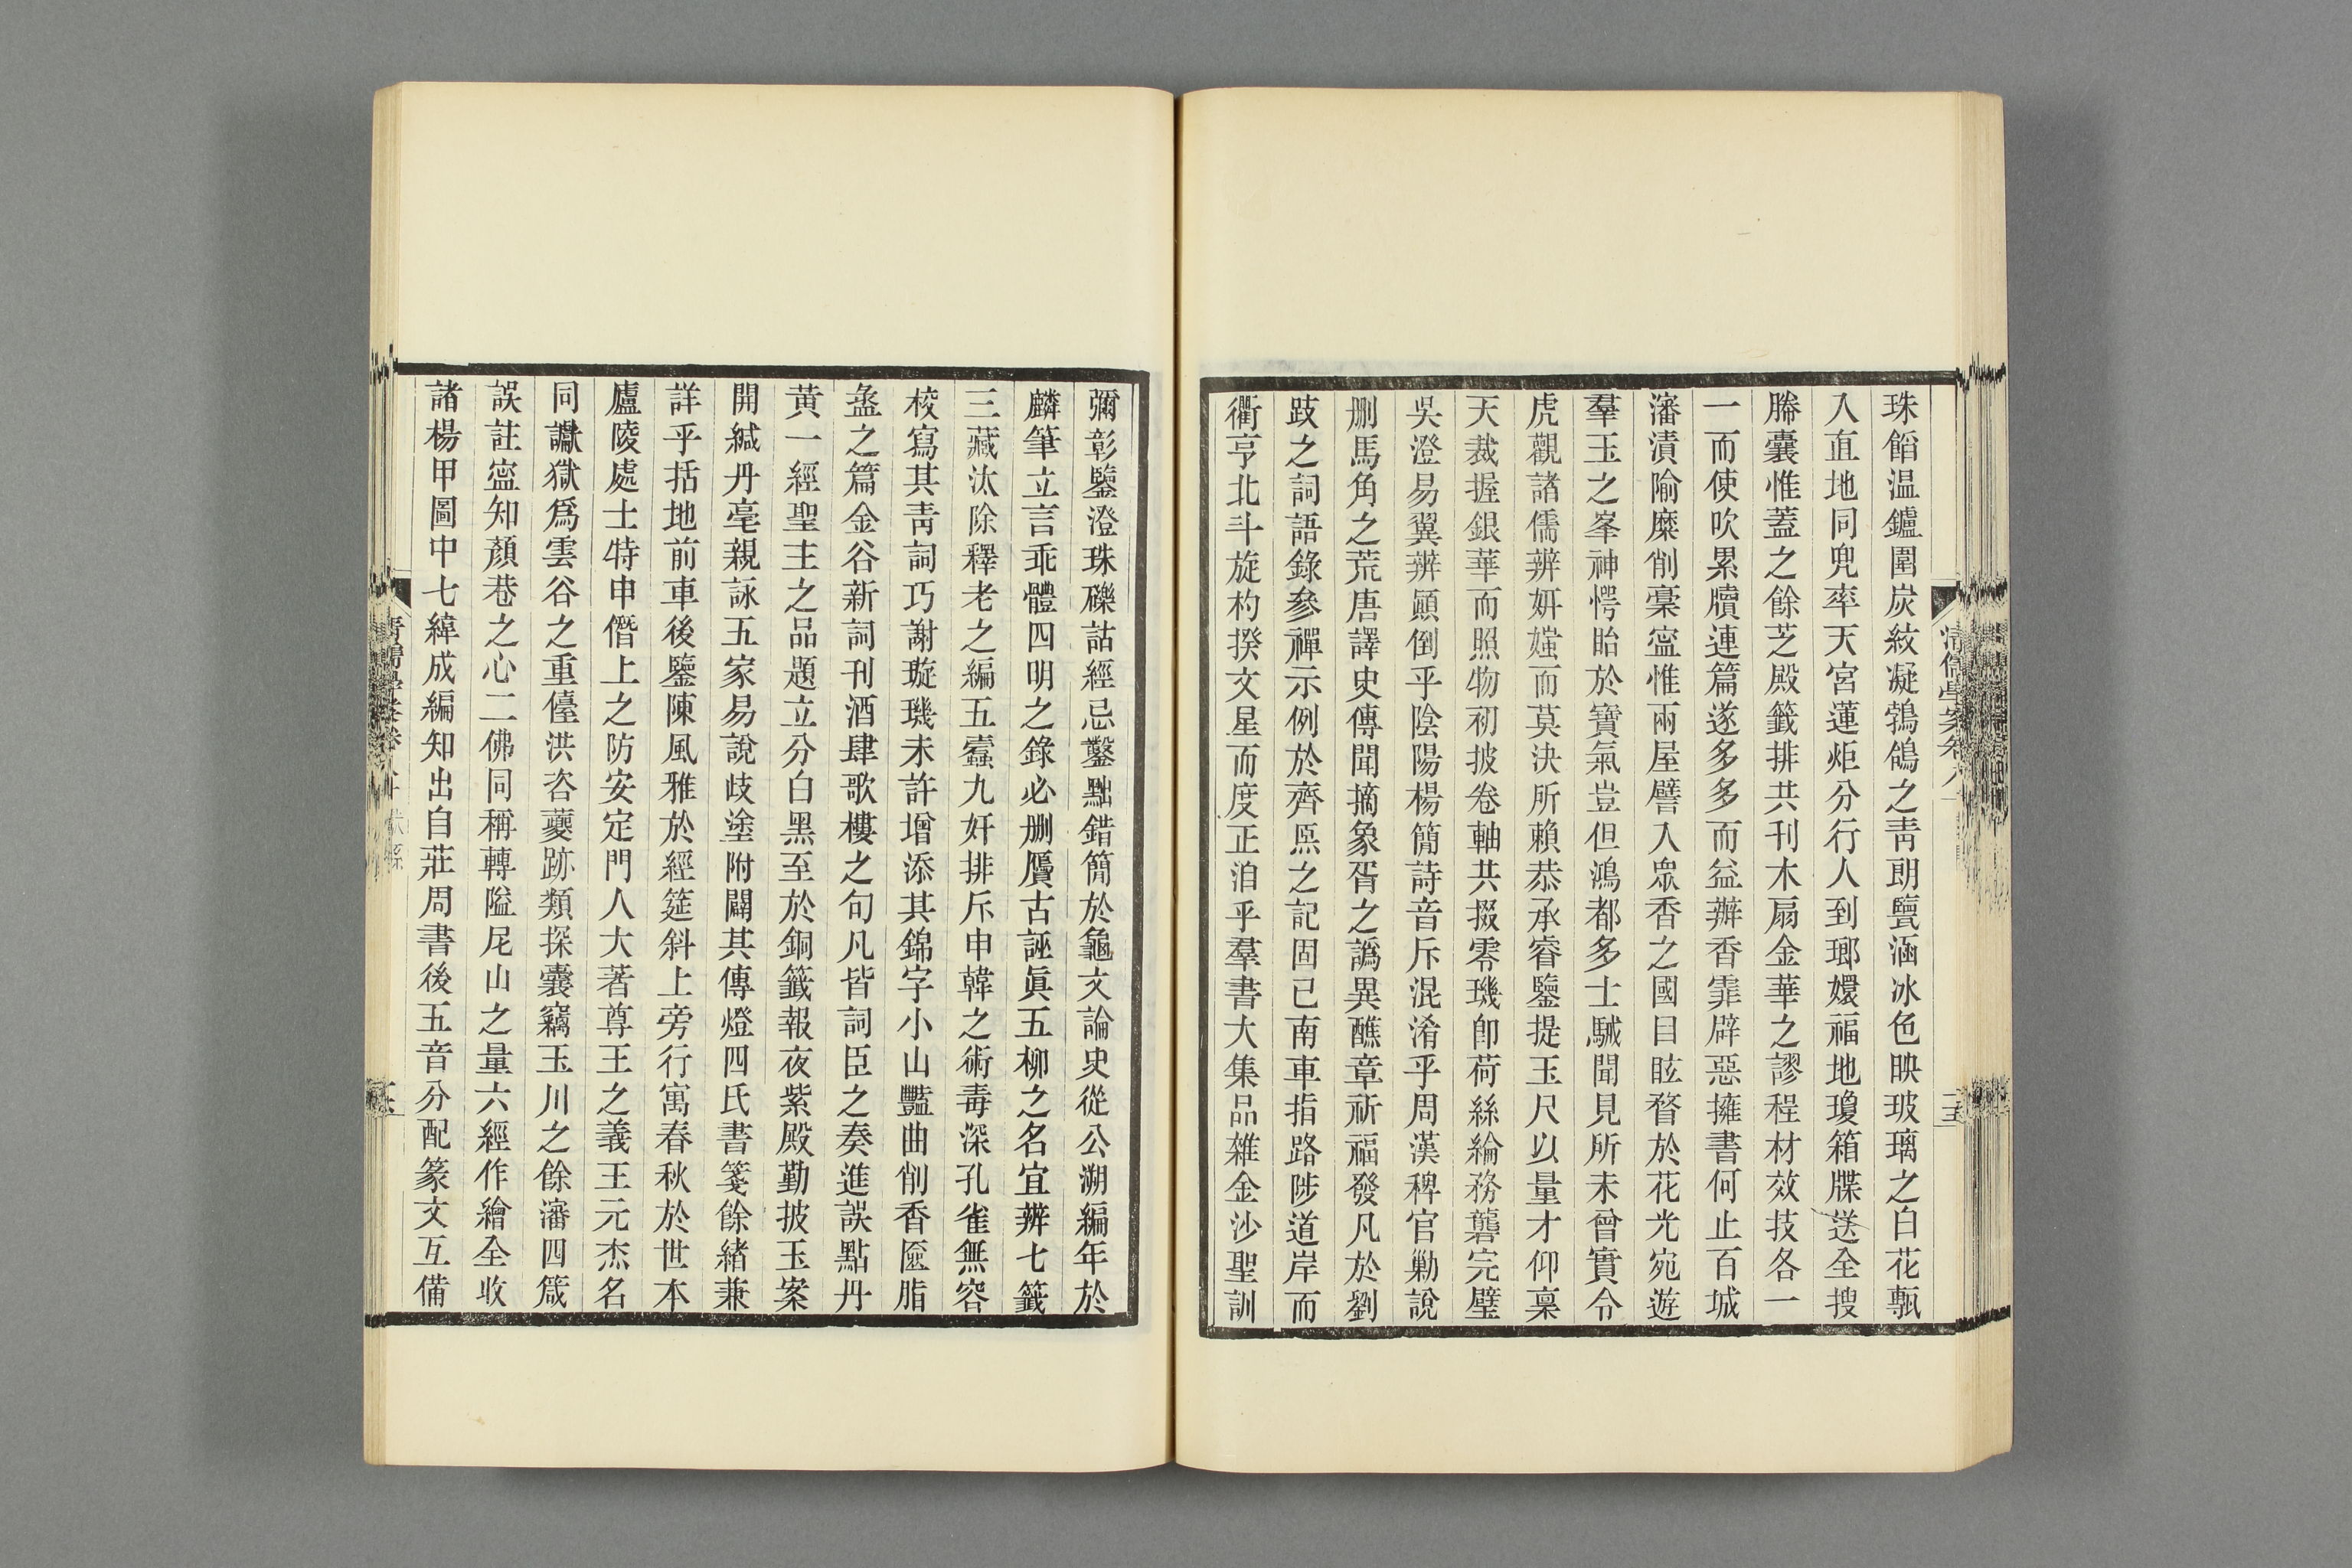 珠餡温鑪圍炭紋凝鵓鴿之靑朗甖涵冰色映玻璃之白花甎
入直地同兜率天宮蓮炬分行人到瑯嬛福地瓊箱牒送全搜
縢囊惟蓋之餘芝殿籤排共刊木扇金華之謬程材效技各一
一而使吹累牘連篇遂多多而益辦香霏辟惡擁書何止百城
瀋漬隃糜削稾寍惟兩屋譬入眾香之國目眩瞀於花光宛遊
羣玉之峯神愕眙於寶氣豈但鴻都多士駴聞見所未曾實令
虎觀諸儒辨姸媸而莫決所賴恭承睿鑒提玉尺以量才仰稟
天裁握銀華而照物初披卷軸共掇零璣卽荷絲綸務礱完璧
吳澄易翼辨顚倒乎陰陽楊簡詩音斥混淆乎周漢稗官勦說
刪馬角之荒唐譯史傳聞摘象胥之譌異醮章祈福發凡於劉
跂之詞語錄參禪示例於齊熙之記固已南車指路陟道岸而
衢亨北斗旋杓揆文星而度正洎乎羣書大集品雜金沙聖訓
彌彰鑒澄珠礫詁經忌鑿黜錯簡於龜文論史從公溯編年於
麟筆立言乖體四明之錄必刪贗古誣眞五柳之名宜辨七籤
三藏汰除釋老之編五蠹九奸排斥申韓之術毒深孔雀無容
校寫其靑詞巧謝璇璣未許增添其錦字小山豔曲削香匳脂
盝之篇金谷新詞刊酒肆歌樓之句凡皆詞臣之奏進誤點丹
黃一經聖主之品題立分白黑至於銅籤報夜紫殿勤披玉案
開緘丹毫親詠五家易說歧塗附闢其傳燈四氏書箋餘緒兼
詳乎括地前車後鑒陳風雅於經筵斜上旁行寓春秋於世本
廬陵處士特申僭上之防安定門人大著尊王之義王元杰名
同讞獄爲雲谷之重儓洪咨夔跡類探囊竊玉川之餘瀋四箴
誤註寍知顏巷之心二佛同稱轉隘尼山之量六經作繪全收
諸楊甲圖中七緯成編知出自莊周書後五音分配篆文互備